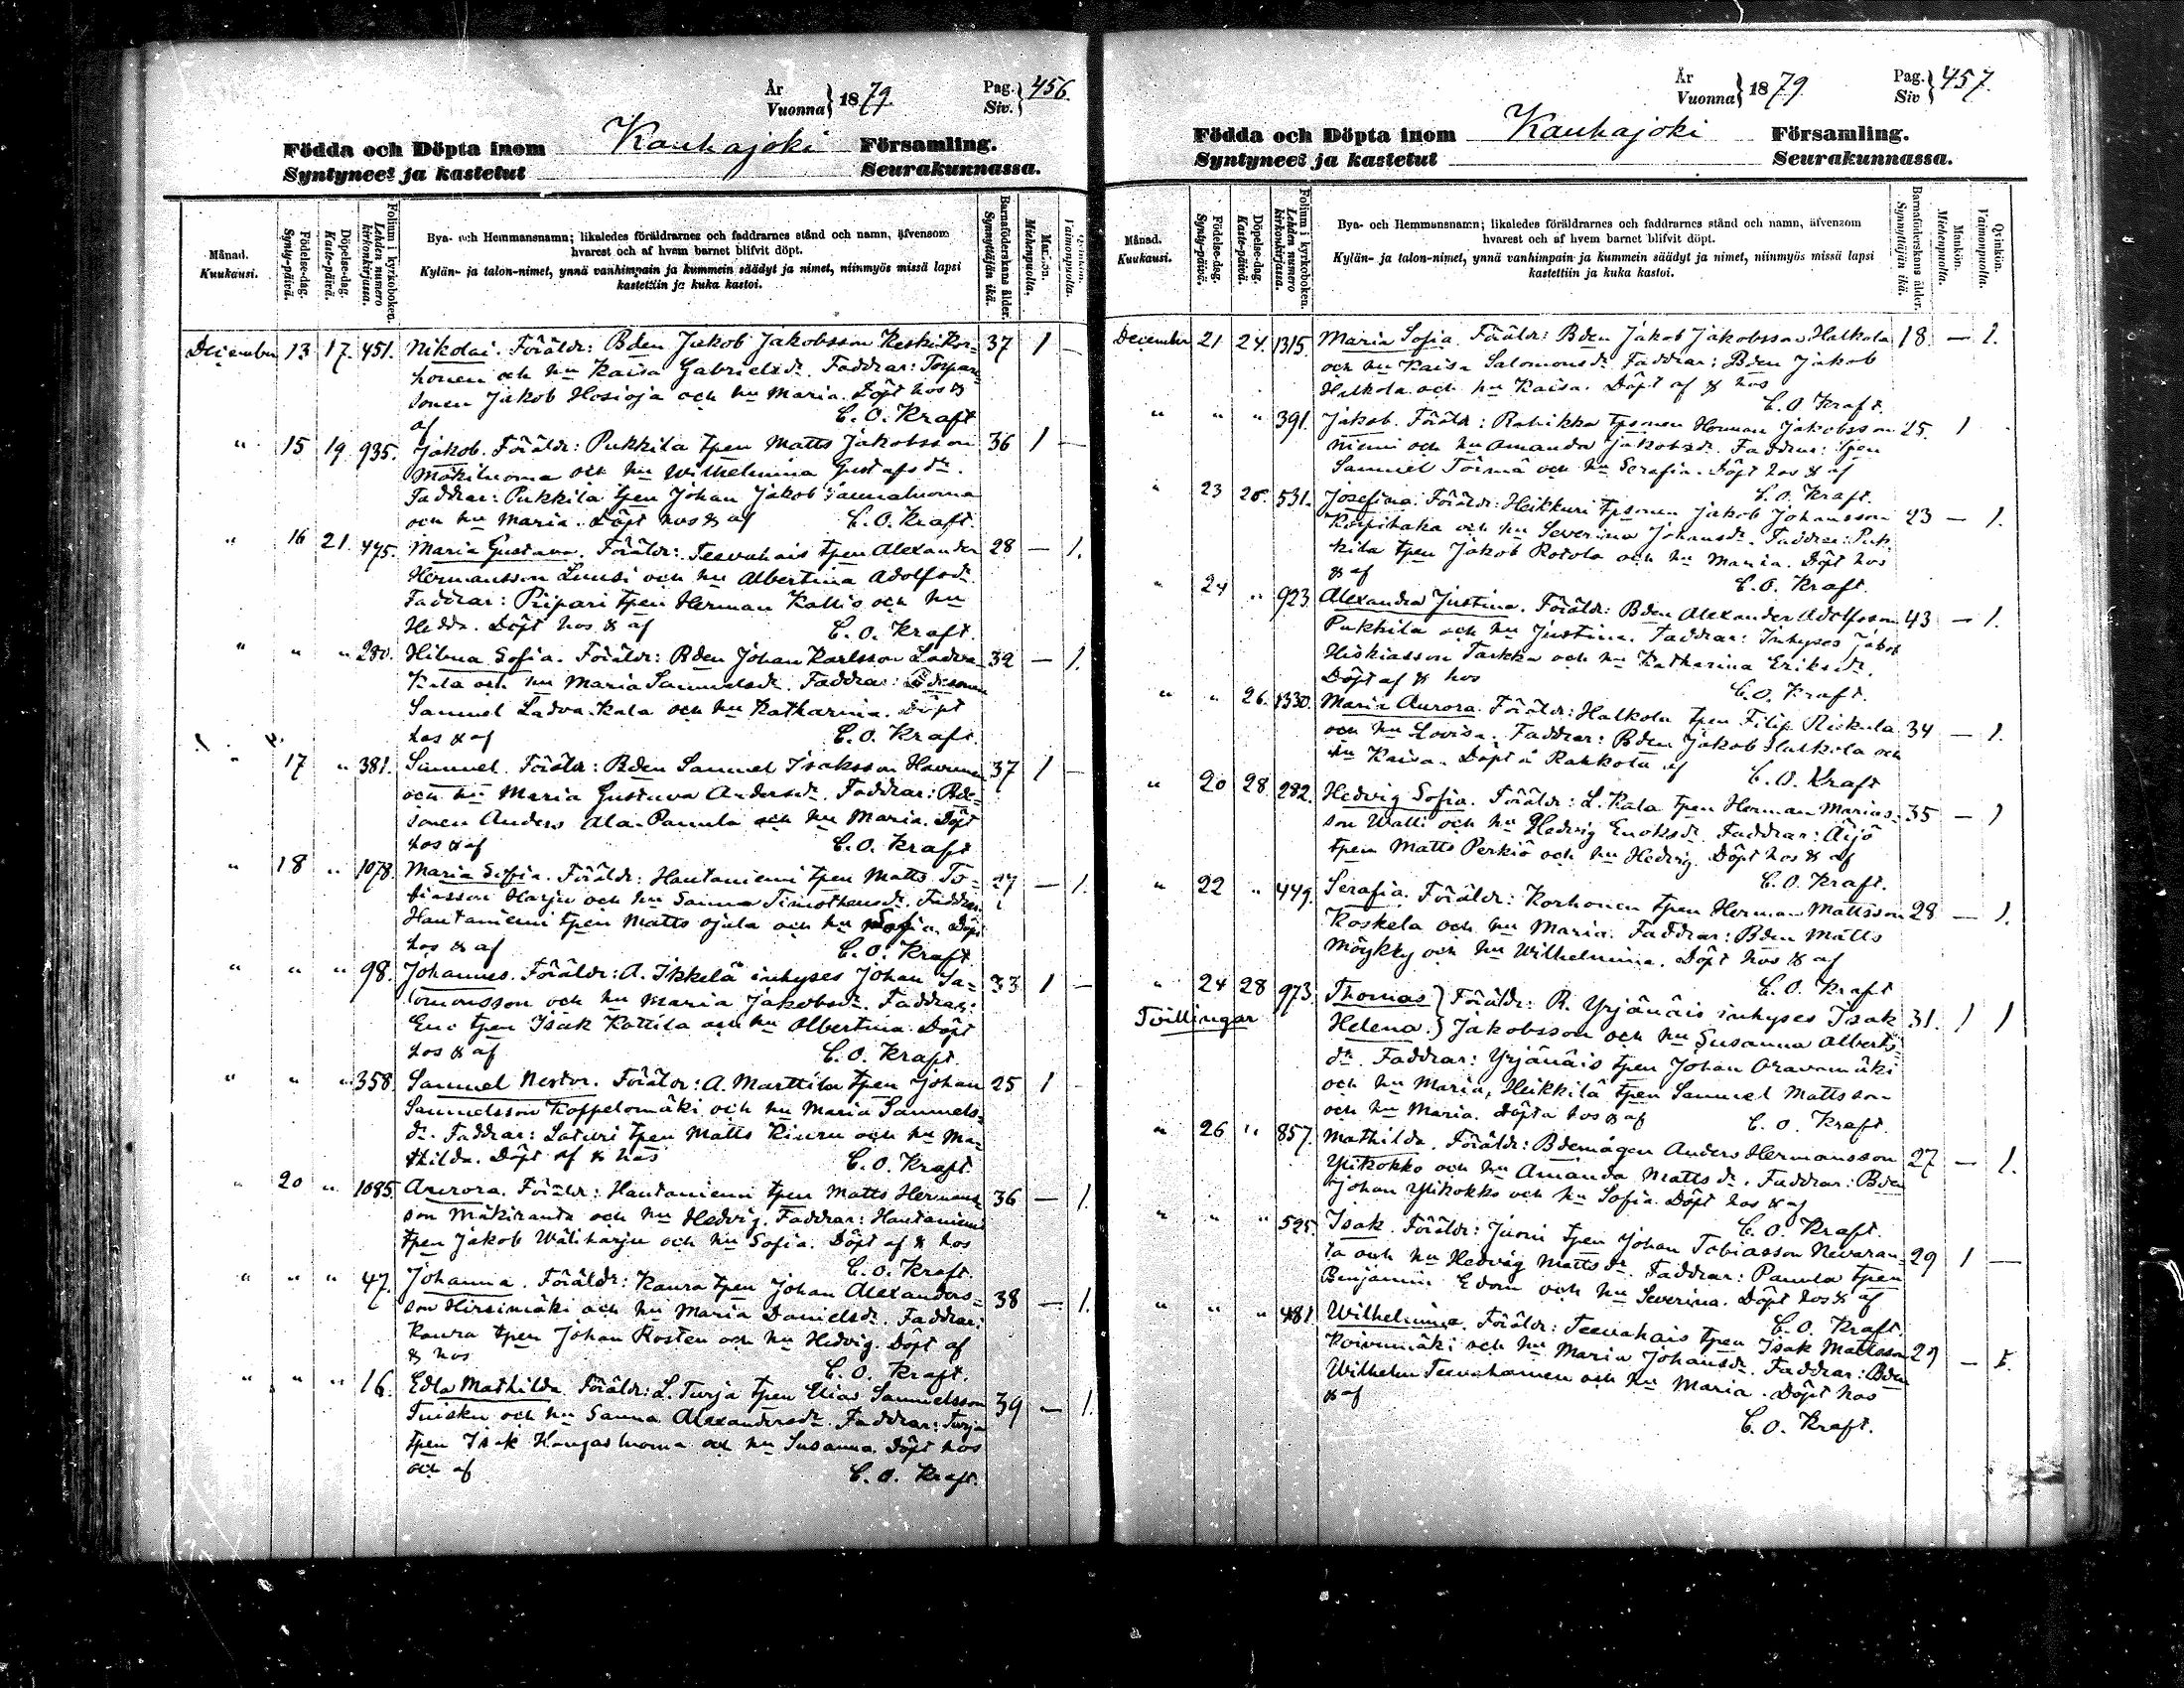 År
Vuonna } 1879.
Pag.
Siv. } 456.
Födda och Döpta inom Kauhajoki Församling.
Syntyneet ja kastetut Seurakunnassa.
Månad.
Kuukausi.
Födelse-dag.
Synty-päivä.
Döpelse-dag.
Kaste-päivä.
Folium i kyrkoboken.
Lehden numero kirkonkirjassa.
Bya- och Hemmansnamn; likaledes föräldrarnes och faddrarnes stånd och namn, äfvensom
hvarest och af hvem barnet blifvit döpt.
Kylän- ja talon-nimet, ynnä vanhimpain ja kummein säädyt ja nimet, niinmyös missä lapsi
kastettiin ja kuka kastoi.
Barnaföderskans ålder.
Synnyttäjän ikä.
Mankön.
Miehenpuolia.
Qvinkön.
Vaimonpuolia.
December 13 17. 451. Nikolai. Föräldr: Bden Jakob Jakobsson KeskiKor= 37 1 —
honen och hu Kaisa Gabrielsdr. Faddrar: Torpare
sonen Jakob Hosioja och hu Maria. Döpt hos &
af C. O. Kraft
" 15 19. 935. Jakob. Föräldr: Pukkila tpen Matts Jakobsson 36 1 —
Mäkiluoma och hu Wilhelmina Gustafsdr.
Faddrar: Pukkila tpen Johan Jakob
och hu Maria. Döpt hos & af C. O. Kraft.
" 16 21. 475. Maria Gustava. Föräldr: Teevahais tpen Alexander 28 — 1.
Hermansson Luusi och hu Albertina Adolfsdr.
Faddrar: Piipari tpen Herman Kallio och hu
Hedda. Döpt hos & af C. O. Kraft.
" " " 280. Hilma Sofia. Föräldr: Bden Johan Karlsson Ladva 32 — 1.
Kala och hu Maria Samuelsdr. Faddrar:
Samuel Ladva-Kala och hu Katharina. Döpt
hos & af C. O. Kraft.
" 17 " 381. Samuel. Föräldr: Bden Samuel Isaksson Havunen 37 1 —
och hu Maria Gustava Andersdr. Faddrar: Bde=
sonen Anders Ala-Panula och hu Maria. Döpt
hos & af C. O. Kraft
" 18 " 1078. Maria Sofia. Föräldr: Hautaniemi tpen Matts To= 27 — 1.
biasson Harju och hu Sanna Timotheusdr. Faddrar:
Hautaniemi tpen Matts Ojala och hu Sofia. Döpt
hos & af C. O. Kraft
" " " 98. Johannes. Föräldr: A. Ikkelä inhyses Johan Sa= 33 1 —
lomonsson och hu Maria Jakobsdr. Faddrar:
tpen Isak Kattila och hu Albertina. Döpt
hos & af C. O. Kraft.
" " " 358. Samuel Nestor. Föräldr: A. Marttila tpen Johan 25 1 -
Samuelsson Koppelomäki och hu Maria Samuels=
dr. Faddrar: Laturi tpen Matts Kiuru och hu Ma=
thilda. Döpt af & hos C. O. Kraft
" 20 " 1085. Aurora. Föräldr: Hautaniemi tpen Matts Hermans= 36 — 1.
son Mäkiranta och hu Hedvig. Faddrar: Hautaniemi
tpen Jakob Wäliharju och hu Sofia. Döpt af & hos
C. O. Kraft.
" " " 47. Johanna. Föräldr: Kaura tpen Johan Alexanders= 38 — 1.
son Hirsimäki och hu Maria Danielsdr. Faddrar:
Kaura tpen Johan Rosten och hu Hedvig. Döpt af
& hos C. O. Kraft.
" " " 16. Edla Mathilda. Föräldr: L. Turja tpen Elias Samuelsson 39 — 1.
Tuisku och hu Sanna Alexandersdr. Faddrar: Turja
tpen Isak Kangasluoma och hu Susanna. Döpt hos
och af C. O. Kraft.
År
Vuonna } 1879
Pag.
Siv } 457.
Födda och Döpta inom Kauhajoki Församling.
Syntyneet ja kastetut Seurakunnassa.
Månad.
Kuukausi.
Födelse-dag.
Synty-päivä.
Döpelse-dag.
Kaste-päivä.
Folium i kyrkoboken.
Lehden numero kirkonkirjassa.
Bya- och Hemmansnamn; likaledes föräldrarnes och faddrarnes stånd och namn, äfvensom
hvarest och af hvem barnet blifvit döpt.
Kylän- ja talon-nimet, ynnä vanhimpain ja kummein säädyt ja nimet, niinmyös missä lapsi
kastettiin ja kuka kastoi.
Barnaföderskans ålder.
Synnyttäjän ikä.
Mankön.
Miehenpuolta.
Qvinkön.
Vaimonpuolta.
December 21 24. 1315. Maria Sofia. Föräldr: Bden Jakob Jakobsson Halkola 18. — 1.
och hu Kaisa Salomonsdr. Faddrar: Bden Jakob
Halkola och hu Kaisa. Döpt af & hos
C. O. Kraft.
" " " 391. Jakob. Föräldr: Rahikka tpsonen Herman Jakobsson 25. 1
Niemi och hu Amanda Jakobsdr. Faddrar: Tpen
Samuel Törmä och hu Serafia. Döpt hos & af
C. O. Kraft.
" 23 25. 531. Josefina. Föräldr: Heikkuri tpsonen Jakob Johansson 23 — 1.
Korpihaka och hu Severina Johansdr. Faddrar: Puk=
kila tpen Jakob Rotola och hu Maria. Döpt hos
& af C. O. Kraft.
" 24 " 923. Alexandra Justina. Föräldr: Bden Alexander Adolfsson 43 — 1.
Pukkila och hu Justina. Faddrar: Inhyses Jakob
Hiskiasson Tarkka och hu Katharina Eriksdr.
Döpt af & hos C. O. Kraft.
" " 26. 1330. Maria Aurora. Föräldr: Halkola tpen Filip Riskula 34 — 1.
och hu Lovisa. Faddrar: Bden Jakob Halkola och
hu Kaisa. Döpt å Rahkola af C. O. Kraft
" 20 28. 282. Hedvig Sofia. Föräldr: L. Kala tpen Herman Marias= 35 — 1
son Walli och hu Hedvig Enoksdr. Faddrar: Äijö
tpen Matts Perkiö och hu Hedvig. Döpt hos & af
C. O. Kraft.
" 22 " 449. Serafia. Föräldr: Korhonen tpen Herman Mattsson 28 — 1.
Koskela och hu Maria. Faddrar: Bden Matts
Möykky och hu Wilhelmina. Döpt hos & af
C. O. Kraft
" 24 28 973. Thomas } Föräldr: R. Yrjänäis inhyses Isak 31. 1 1
Tvillingar Helena. } Jakobsson och hu Susanna Alberts=
dr. Faddrar: Yrjänäis tpen Johan Oravamäki
och hu Maria, Heikkilä tpen Samuel Mattsson
och hu Maria. Döpta hos & af C. O. Kraft.
" 26 " 857. Mathilda. Föräldr: Bdemågen Anders Hermansson 27 — 1.
Ylikokko och hu Amanda Mattsdr. Faddrar: Bden
Johan Ylikokko och hu Sofia. Döpt hos & af
C. O. Kraft.
" " " 525. Isak. Föräldr: Juoni tpen Johan Tobiasson Nevaran= 29 1 —
ta och hu Hedvig Mattsdr. Faddrar: Panula tpen
Benjamin Edom och hu Severina. Döpt hos & af
C. O. Kraft.
" " " 481. Wilhelmina. Föräldr: Teevahais tpen Isak Mattsson 29 — 1.
Koivumäki och hu Maria Johansdr. Faddrar: Bden
Wilhelm Teevahainen och hu Maria. Döpt hos
& af
C. O. Kraft.